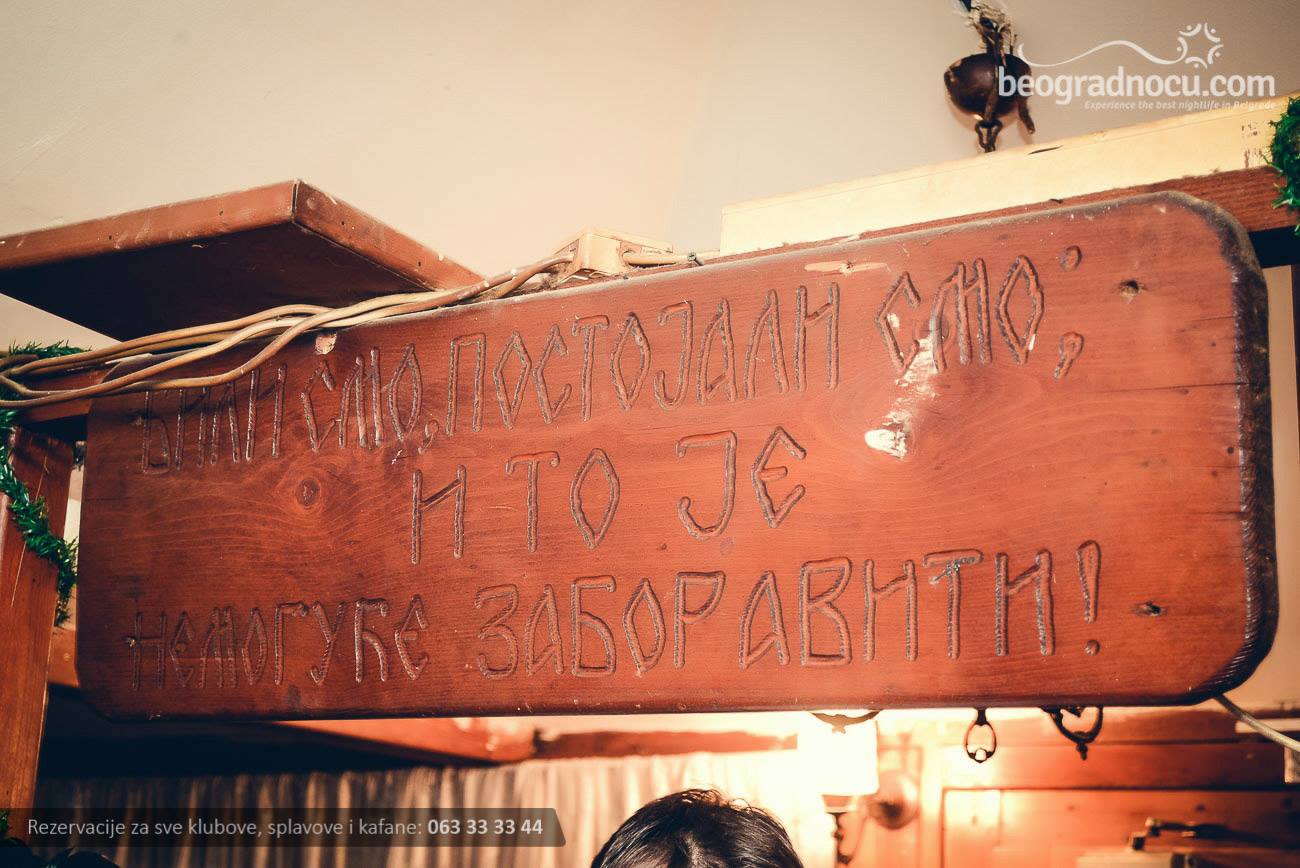 beogradnocu.com
Experience the best nightlife in Belgrade
БИЛИ СМО, ПОСТОЈАЛИ СМО;
И ТО ЈЕ
НЕМОГУЋЕ ЗАБОРАВИТИ!
Rezervacije za sve klubove, splavove i kafane: 063 33 33 44